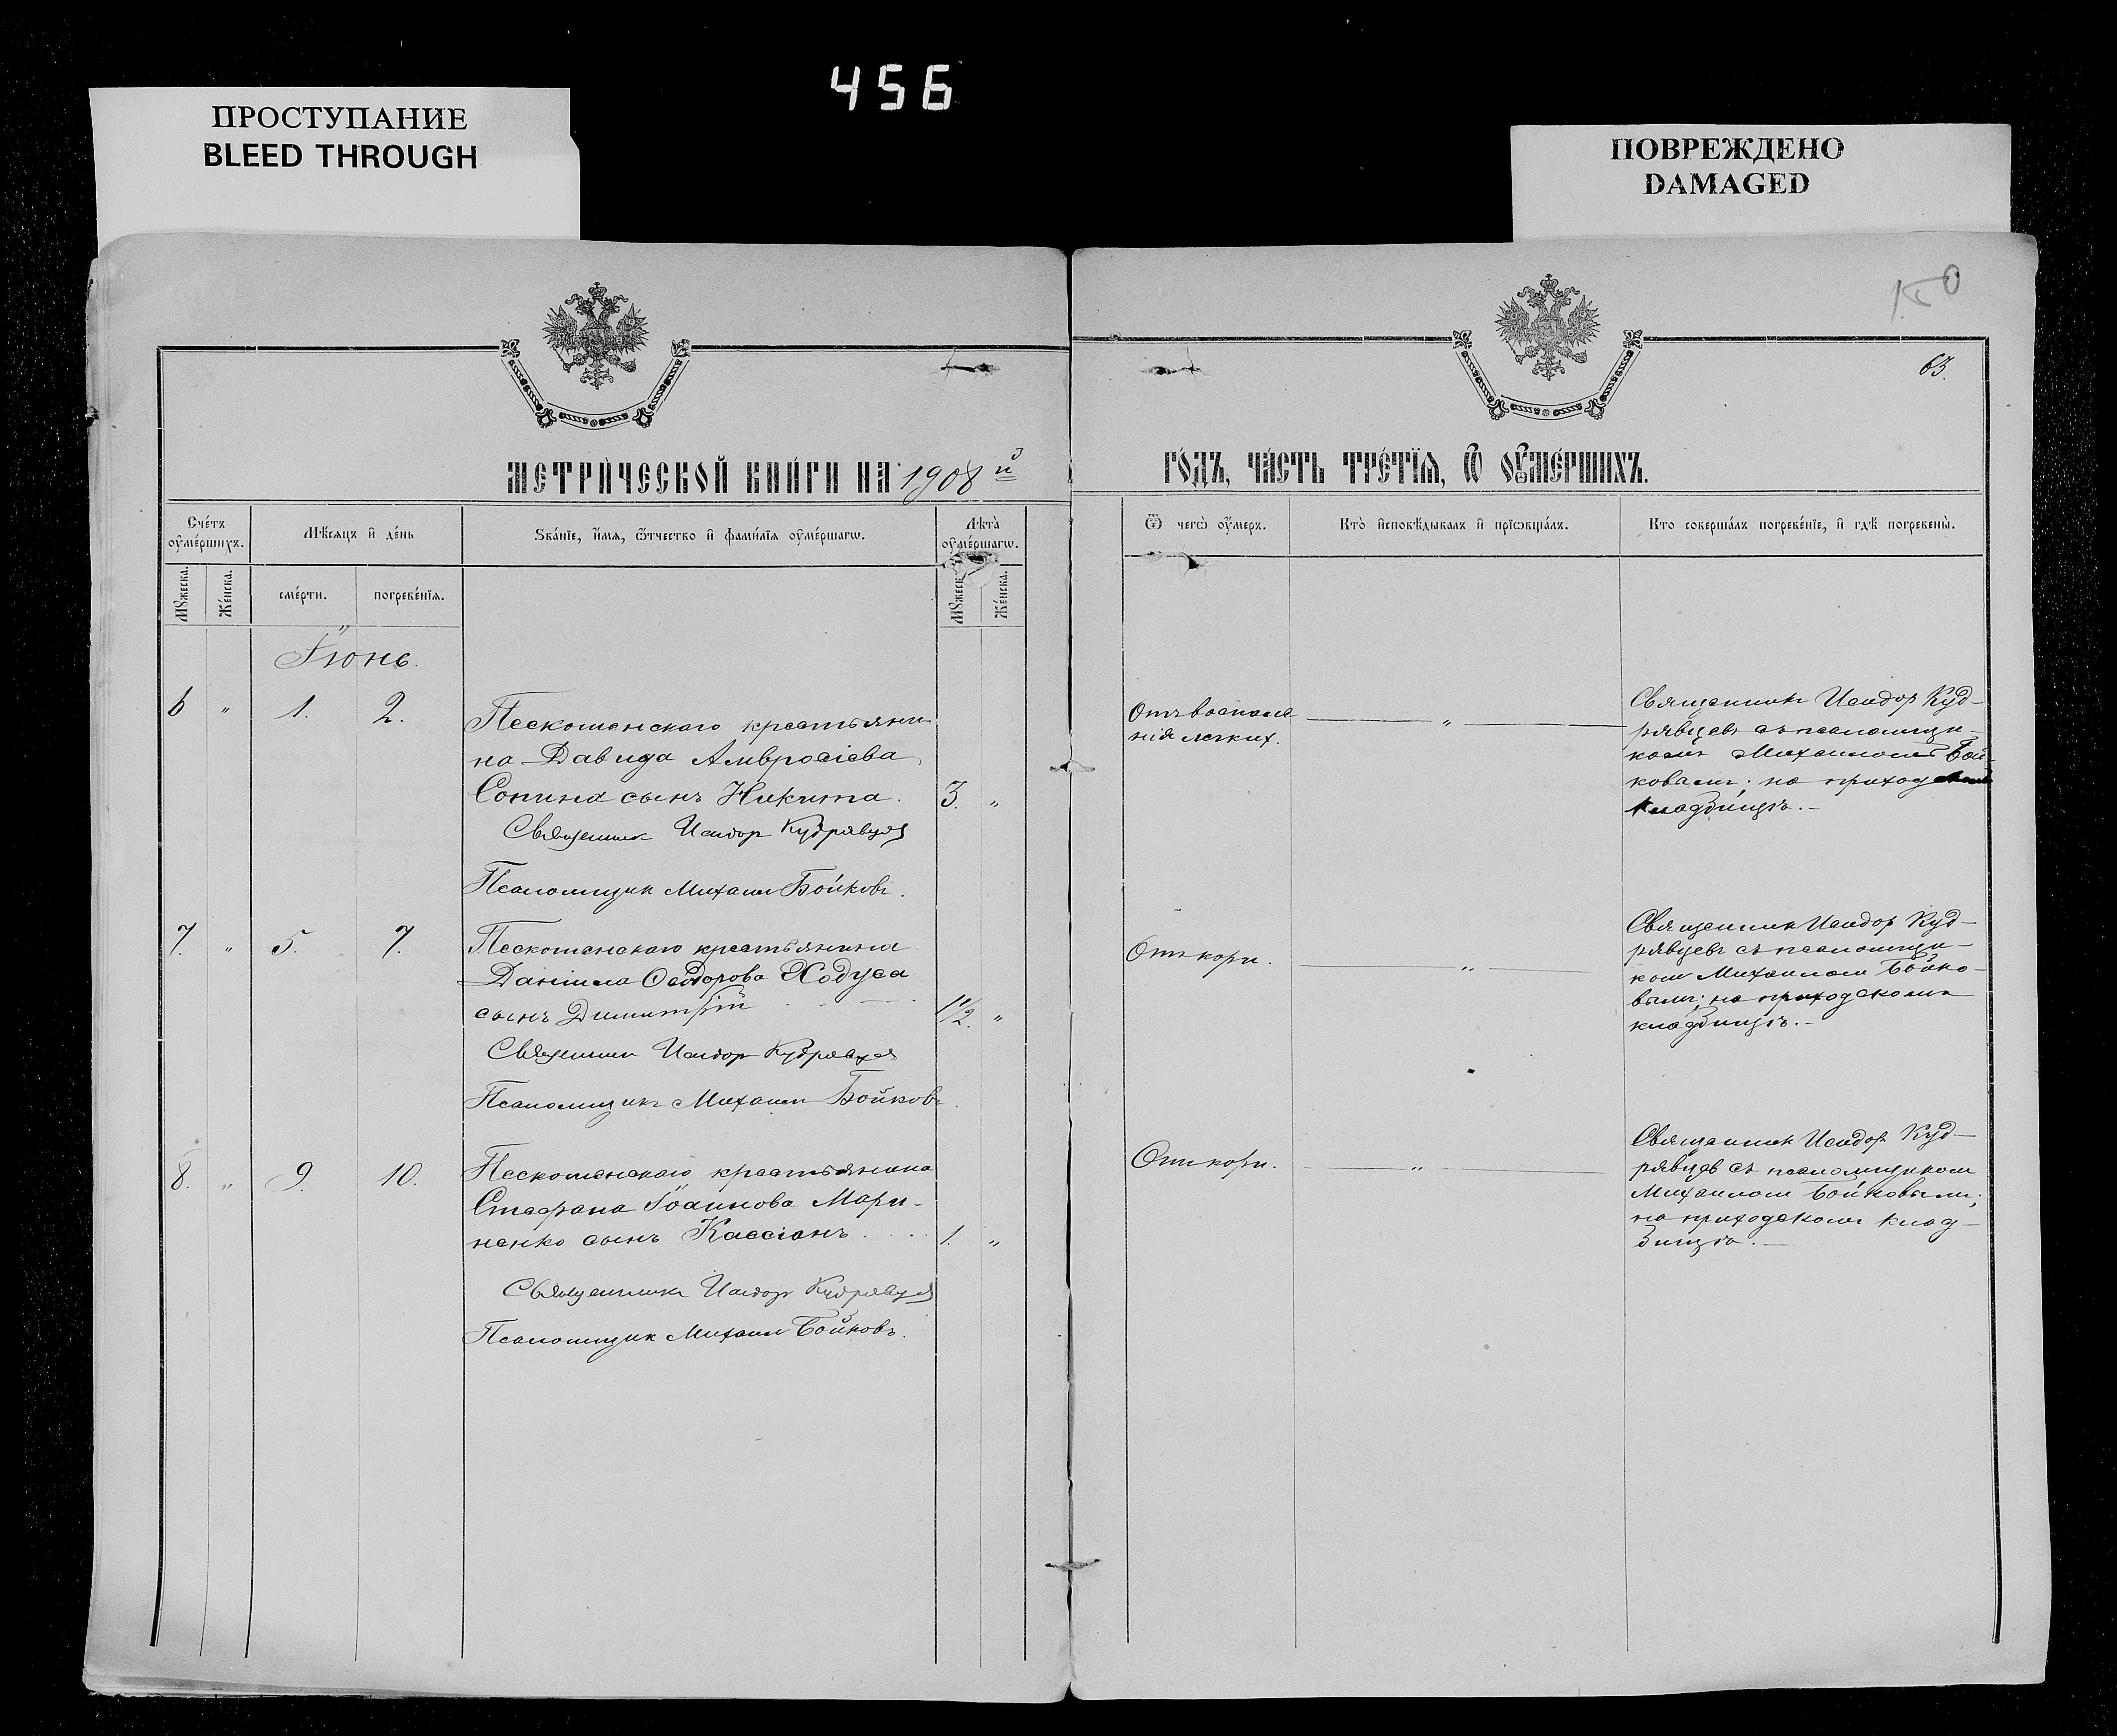 456
ПРОСТУПАНИЕ
BLEED THROUGH
ПОВРЕЖДЕНО
DAMAGED
150
63.
МЕТРИ́ЧЕСКОЙ КНИ́ГИ НА 1908 й
ГО́ДЪ, ЧА́СТЬ ТРЕ́ТЇѦ, Ѿ ОУМЕ́РШИХЪ.
Сче́тъ оуме́ршихъ.
Мѣ́сѧцъ и де́нь
Зва́нїе, и́мѧ, ѻ́тчество и фами́лїѧ оуме́ршагѡ.
Лѣ́та оуме́ршагѡ.
Ѿ чегѡ̀ оу́меръ.
Кто̀ исповѣ́дывалъ и прїѡбща́лъ.
Кто соверша́лъ погребе́нїе, и гдѣ̀ погребены̀.
Мꙋжеска.
Же́нска.
сме́рти.
погребе́нїѧ.
Мꙋжеск
Же́нска.
Іюнь.
6 " 1. 2.
Пескошенскаго крестьяни
на Давида Амвросіева
Сопина сынъ Никита. 3. "
Священник Исидор Кудрявцев
Псаломщик Михаил Бойковъ.
Отъ воспале
нія легких. "
Священникъ Исидор Куд-
рявцевъ съ псаломщи-
комъ Михаиломъ Бой-
ковымъ; на приходском
кладбищѣ.-
7. " 5. 7.
Пескошенскаго крестьянина
Даніила Ѳедорова Ходуса
сынъ Димитрій 1 1/2. "
Священник Исидор Кудрявцев
Псаломщикъ Михаил Бойковъ.
Отъ кори. "
Священник Исидор Куд-
рявцевъ съ псаломщи-
ком Михаилом Бойко-
вымъ; на приходскомъ
кладбищѣ.-
8. " 9. 10.
Пескошенскаго крестьянина
Стефана Іоаннова Мари-
ненко сынъ Кассіанъ 1. "
Священникъ Исидор Кудрявцев
Псаломщик Михаил Бойковъ.
Отъ кори. "
Священник Исидор Куд-
рявцев съ псаломщиком
Михаилом Бойковым;
на приходском клад-
бищѣ.-